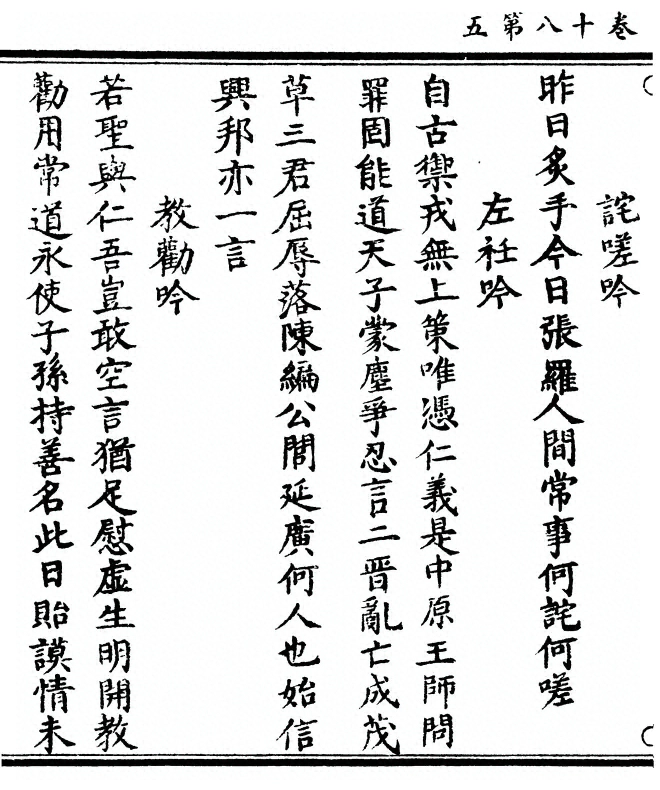 卷十八第五
詫嗟吟
昨日炙手今日張羅人間常事何詫何嗟
左衽吟
自古禦戎無上策唯憑仁義是中原王師問
罪固能道天子蒙塵爭忍言二晉亂亡成茂
草三君屈辱落陳編公閭延廣何人也始信
興邦亦一言
教勸吟
若聖與仁吾豈敢空言猶足慰虛生明開教
勸用常道永使子孫持善名此日貽謨情未